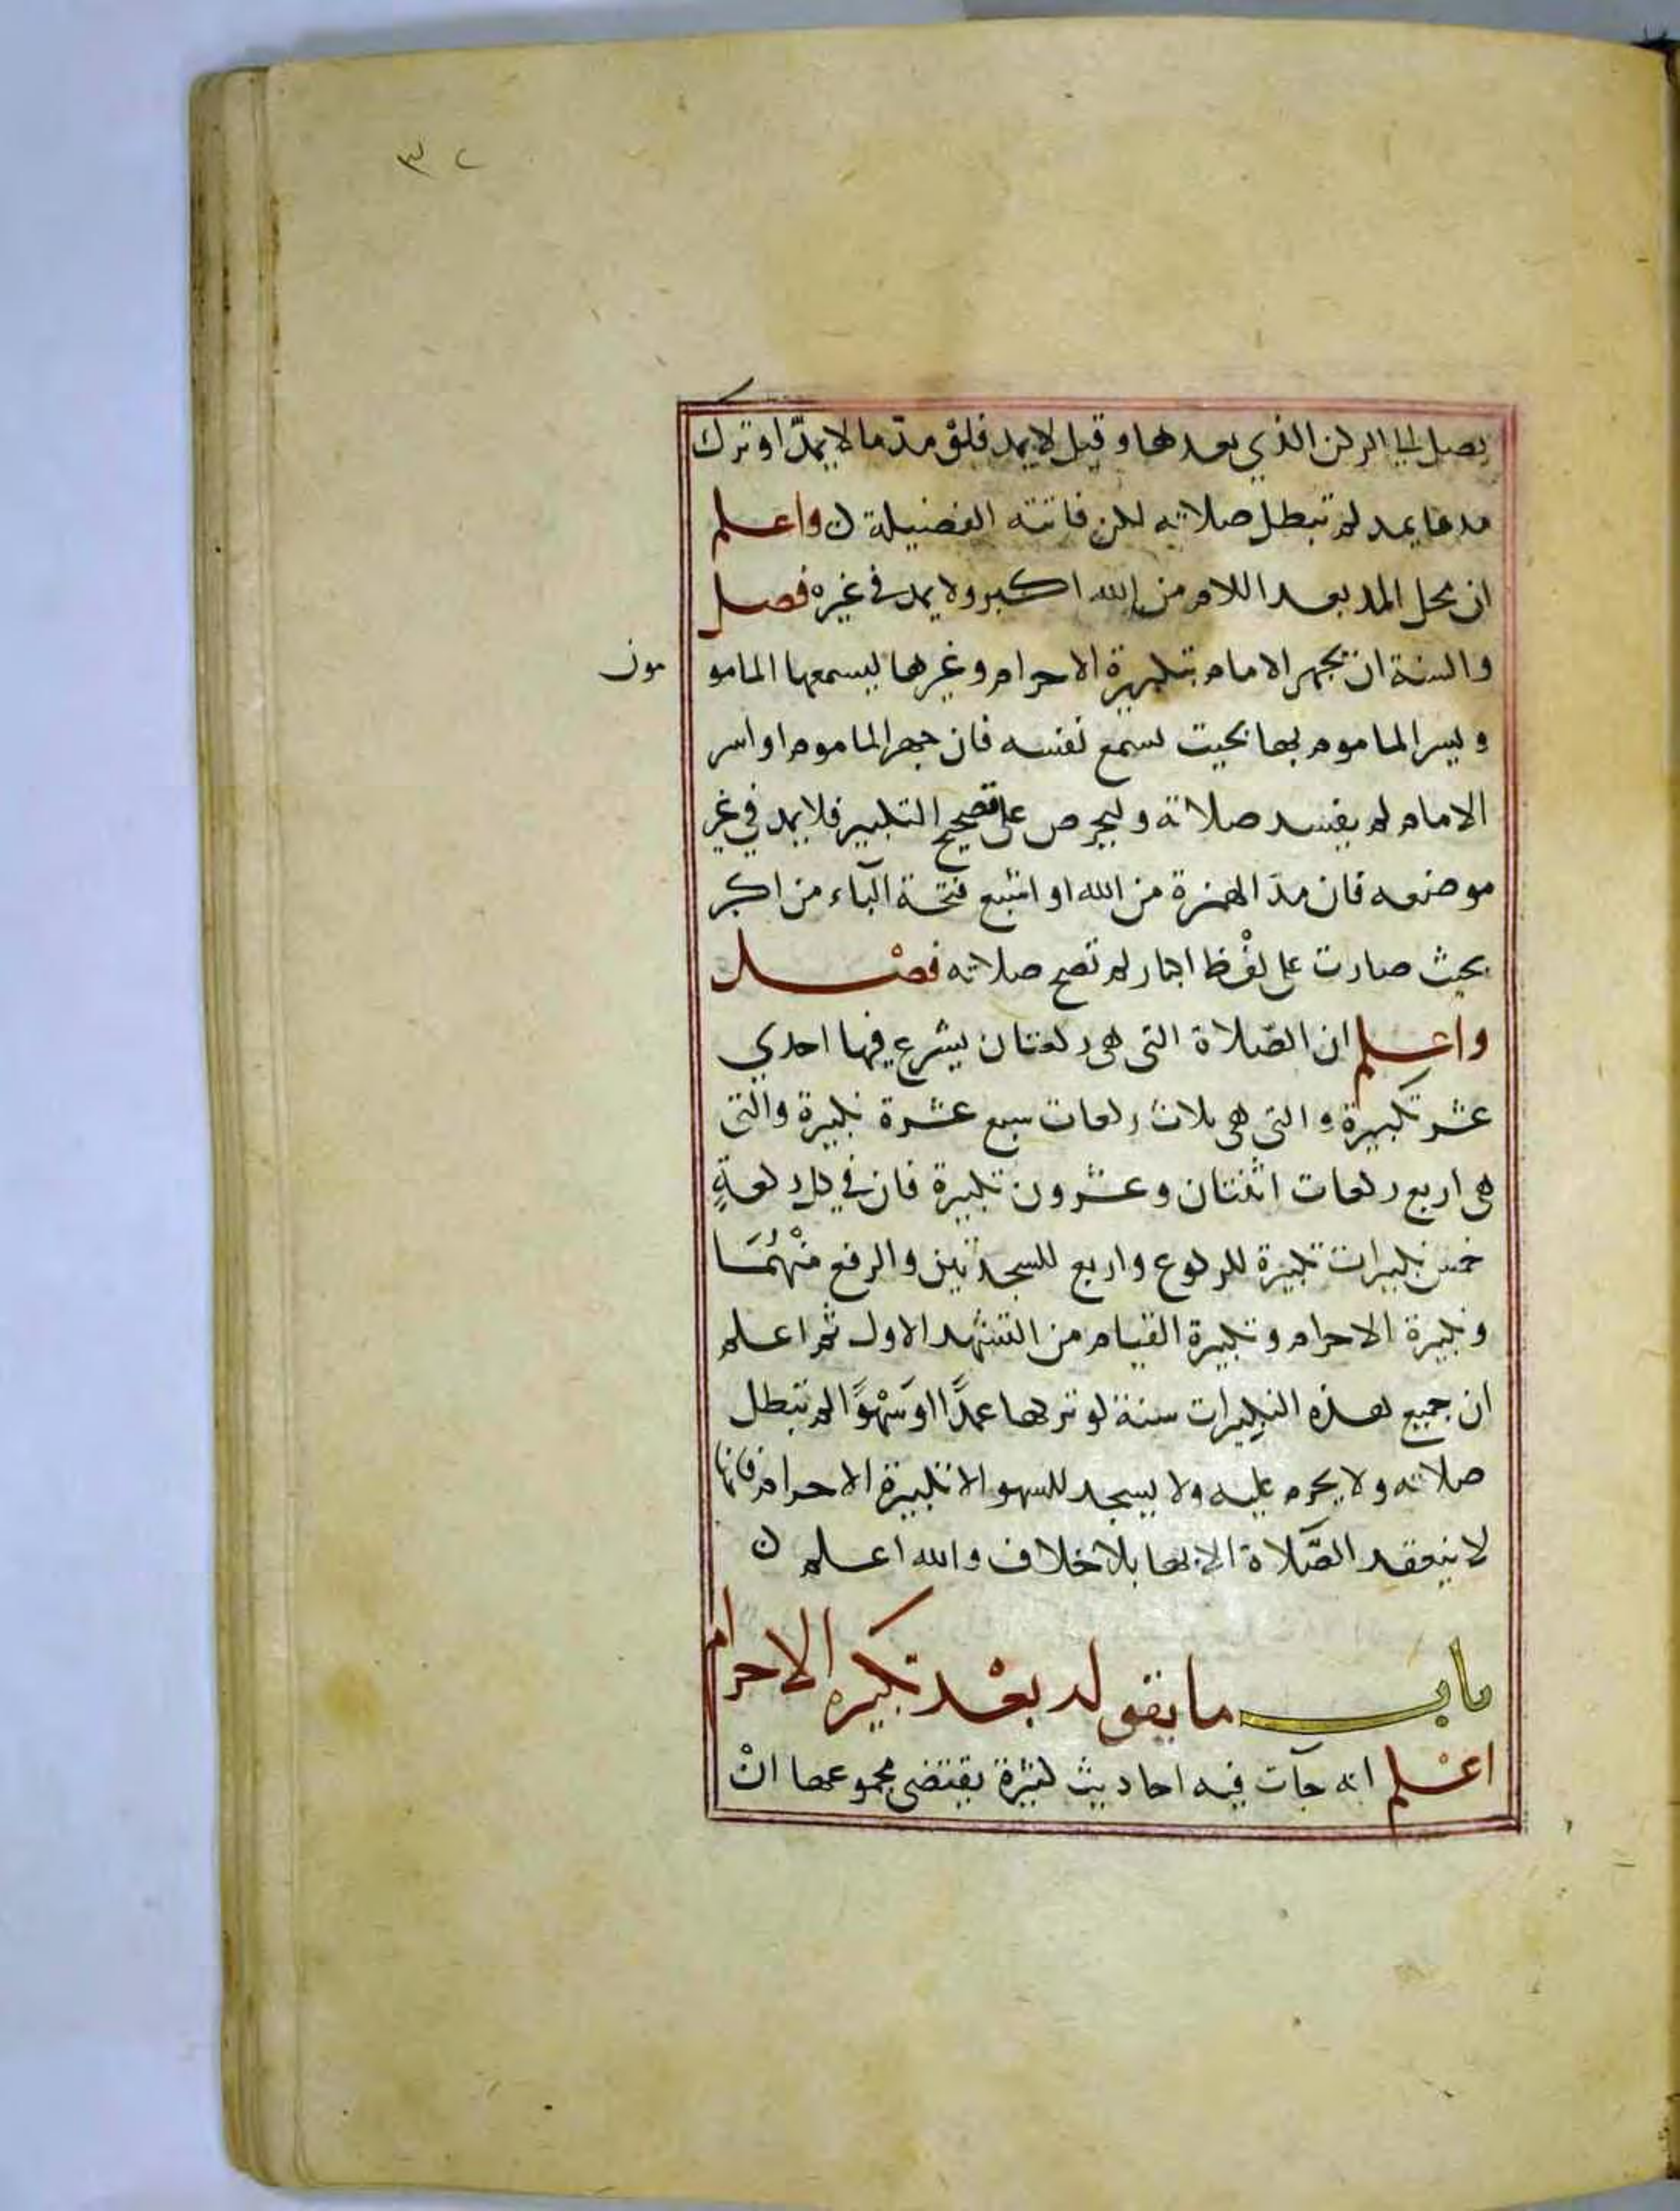 ٣٢
يصل الى الركن الذي بعدها وقيل لا يمد فلو مدّ ما لا يمدّ او ترك
مد ما يمد لم تبطل صلاته لكن فاتته الفضيلة ن واعلم
ان محل المد بعد اللام من الله اكبر ولا يمد في غيره فصل
والسنة ان يجهر الامام بتكبيرة الاحرام وغيرها ليسمعها المامو مون
ويسر الماموم بها بحيث يسمع نفسه فان جهر الماموم او اسر
الامام لم يفسد صلاته وليحرص على تصحيح التكبير فلا يمد في غير
موضعه فان مدّ الهمزة من الله او اشبع فتحة الباء من اكبر
بحيث صارت على لفْظ اكبار لم تصح صلاته فصْل
واعلم ان الصّلاة التى هى ركعتان يشرع فيها احدي
عشر تكبيرة والتى هى ثلاث ركعات سبع عشرة تكبيرة والتى
هى اربع ركعات اثنتان وعشرون تكبيرة فان في كل ركعةٍ
خمس تكبيرات تكبيرة للركوع واربع للسجدتين والرفع منْهُمَا
وتكبيرة الاحرام وتكبيرة القيام من التشهد الاول ثم اعلم
ان جميع هذه التكبيرات سنة لو تركها عمدًا اوسَهْوًا لم تبطل
صلاته ولا يحرم عليه ولا يسجد للسهو الا تكبيرة الاحرام فانها
لا ينعقد الصّلاة الا بها بلا خلاف والله اعلم ن
باب ما يقوله بعْد تكبيرة الاحرام
اعْلم انه جآت فيه احاديث كثيرة يقتضى مجموعها انْ